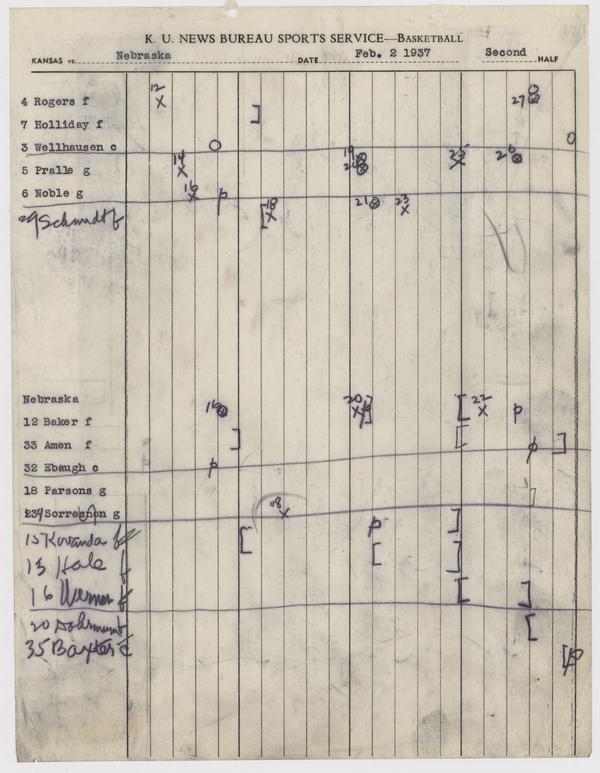 K. U. NEWS BUREAU SPORTS SERVICE—BASKETBALL
KANSAS vs. Nebraska DATE Feb. 2 1937 Second HALF
12
4 Rogers f X 27
7 Holliday f ]
3 Wellhausen c O O
14 19 25 26
5 Pralle g X X
6 Noble g 16 X p
29 Schmidt f [ 18 X 21 23 X
Nebraska
12 Baker f 16 20 X p ] [ 22 X p
33 Amen f ] [ p ]
32 Ebaugh c p
18 Parsons g ]
Sorresnon g 18 X ]
p
[
13 Hale f [ ]
16 Werner f [ ]
20 [
35 Baxter c [ p